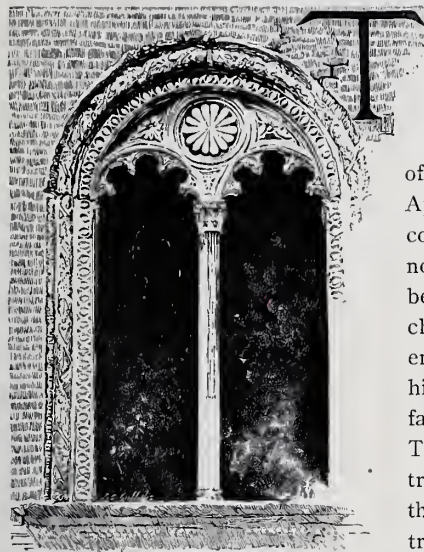 T
of
co
no
be
ch
en
hi
fa
T
tr
th
tr